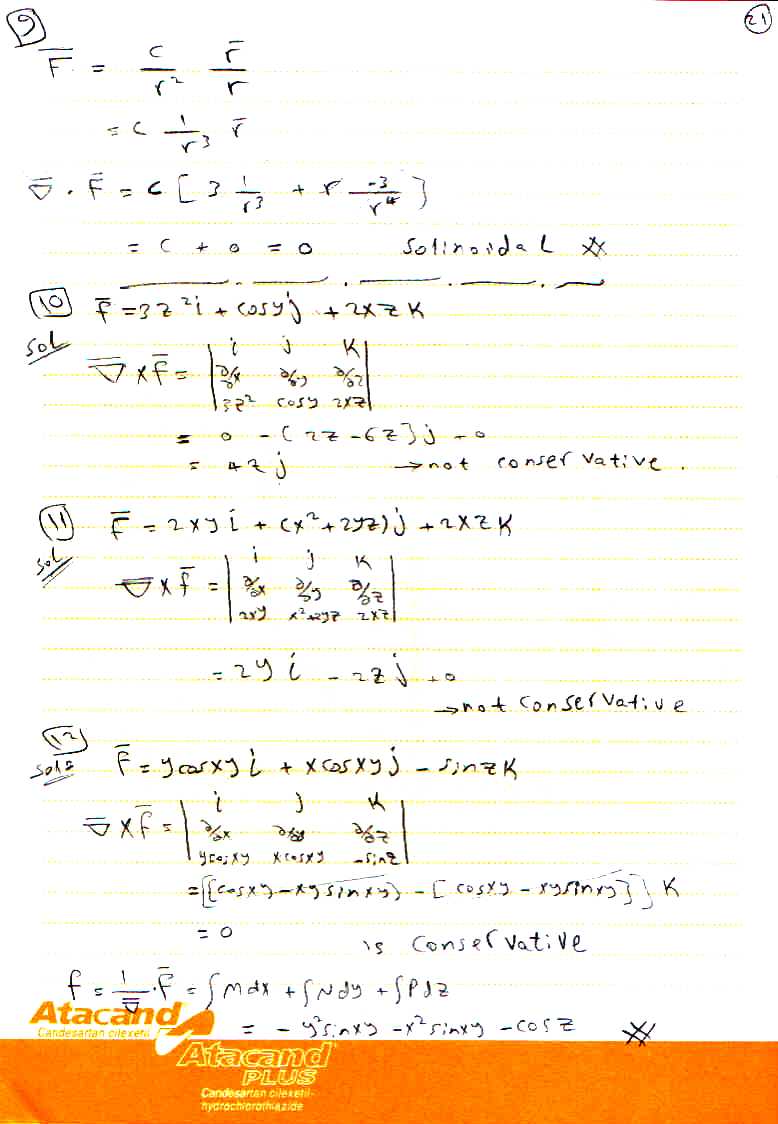 9 21
F̅ = c/r² r̅/r
= c 1/r³ r̅
∇̅ . F̅ = c [ 3 1/r³ + r -3/r⁴ ]
= c + 0 = 0 Solinoidal
10 F̅ = 3z²i + cosyj + 2xzk
Sol
∇̅ x F̅ = | i j k |
| ∂/∂x ∂/∂y ∂/∂z |
| 3z² cosy 2xz |
= 0 - (2z - 6z)j + 0
= 4zj → not conservative.
11 F̅ = 2xyi + (x² + 2yz)j + 2xzk
Sol
∇̅ x f̅ = | i j k |
| ∂/∂x ∂/∂y ∂/∂z |
| 2xy x²+2yz 2xz |
= 2yi - 2zj + 0
→ not conservative
12
Sol: F̅ = ycosxyi + xcosxyj - sinzk
∇̅ x f̅ = | i j k |
| ∂/∂x ∂/∂y ∂/∂z |
| ycosxy xcosxy -sinz |
= [[cosxy - xysinxy) - [cosxy - xysinxy]] k
= 0
is conservative
f = 1/∇̅ . F̅ = ∫Mdx + ∫Ndy + ∫Pdz
= - y²sinxy - x²sinxy - cosz
Atacand
Candesartan cilexetil
Atacand
PLUS
Candesartan cilexetil-
hydrochlorothiazide